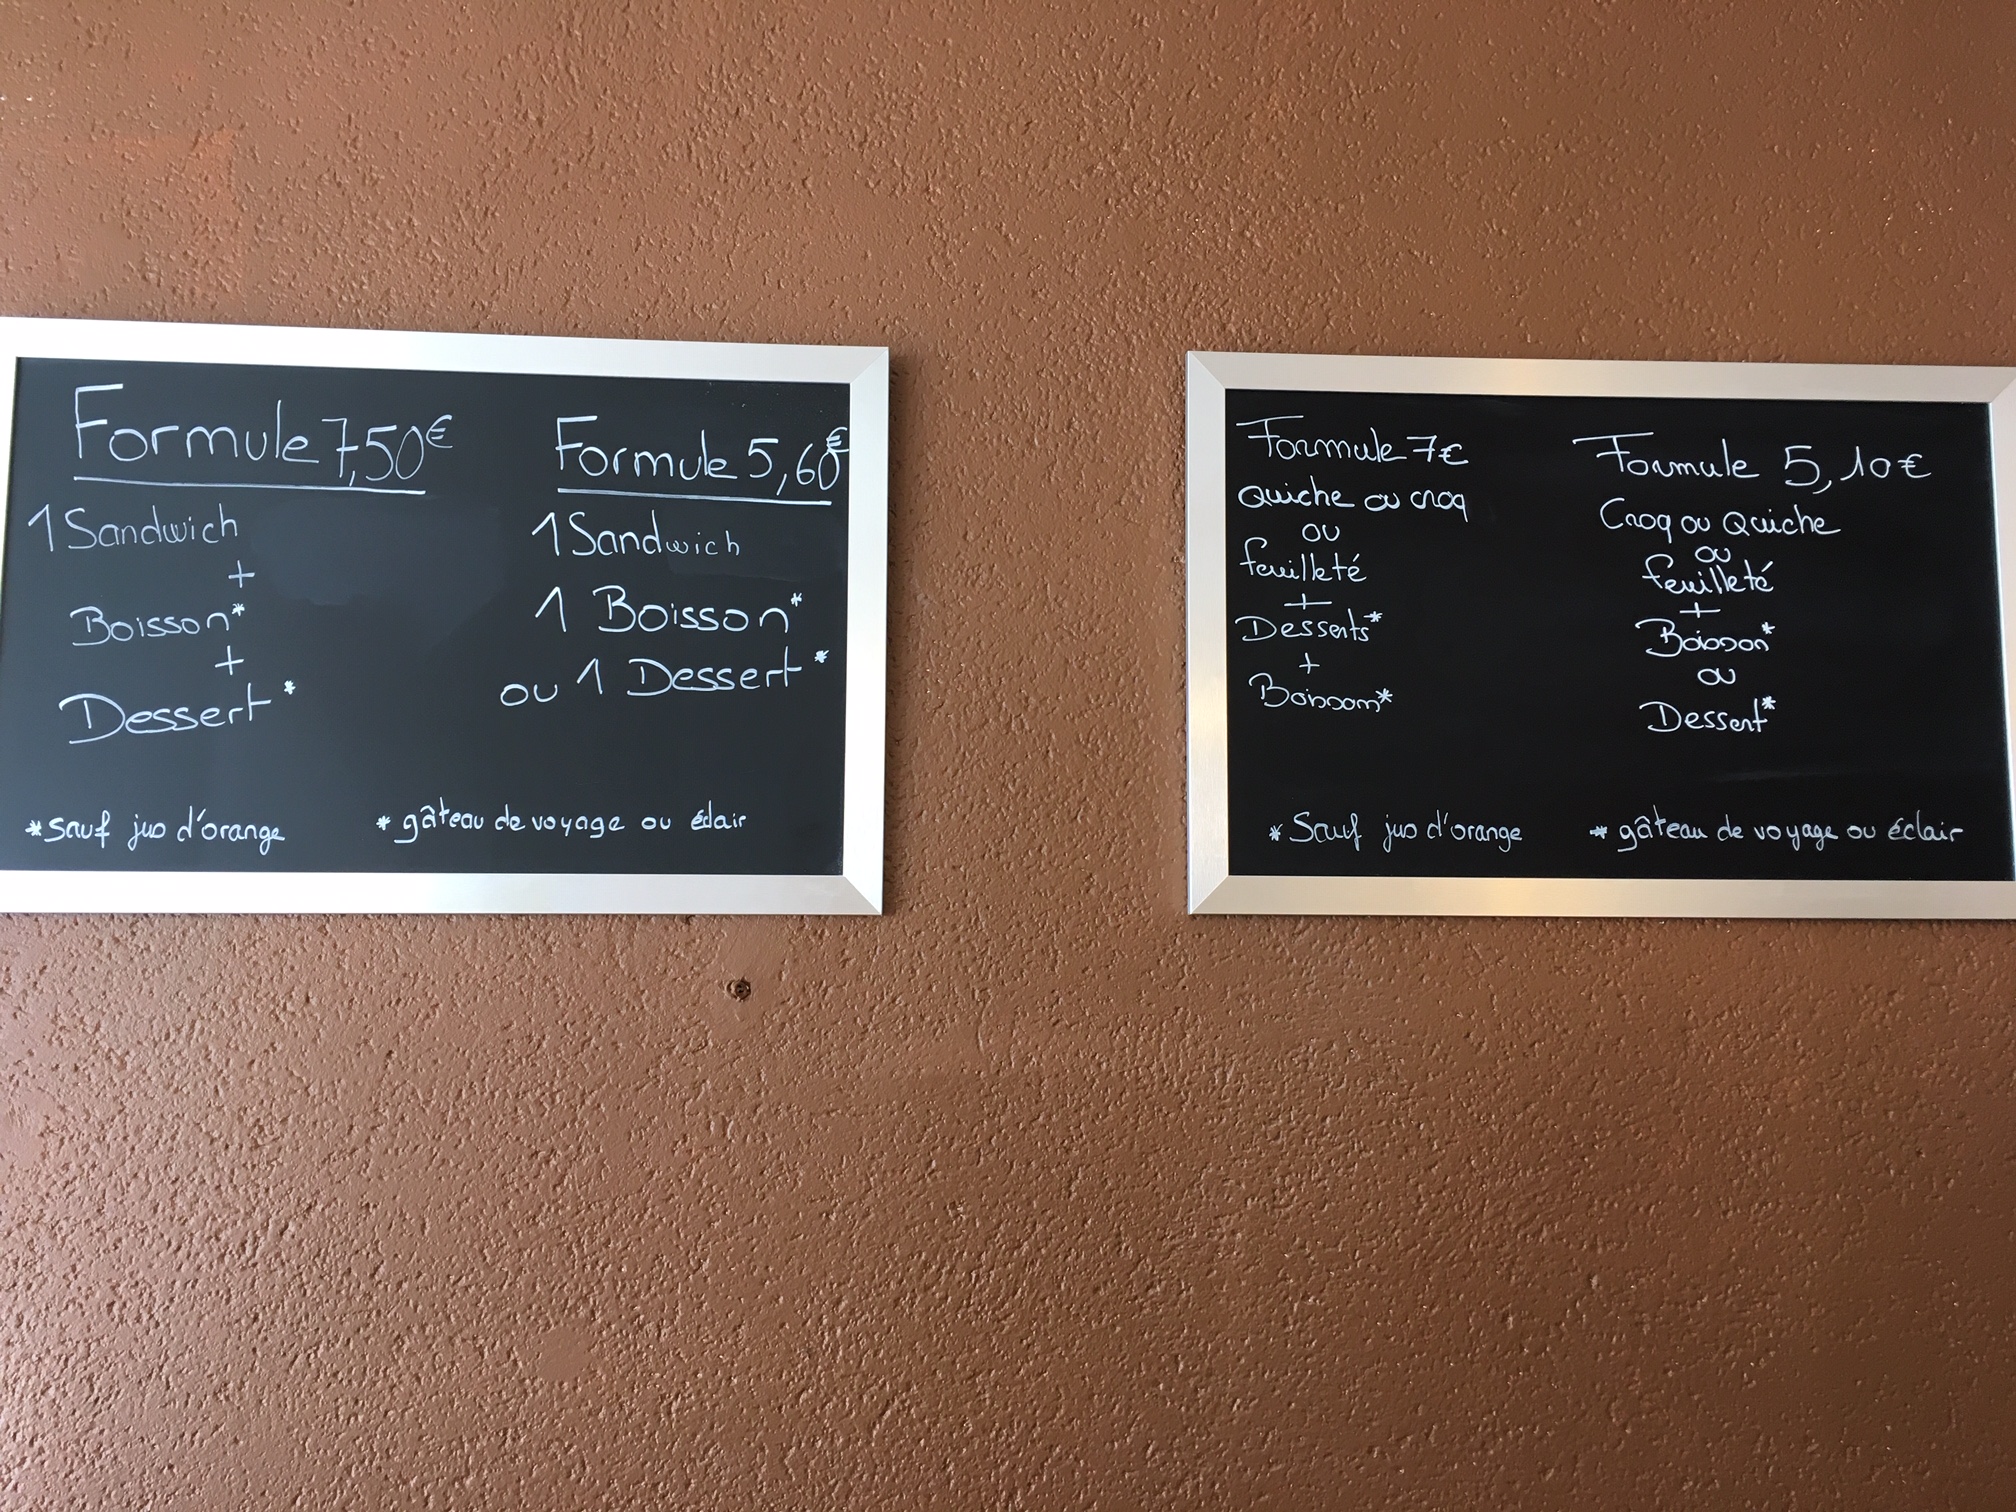 Formule 7,50€
1 Sandwich
+
Boisson*
+
Dessert*
Formule 5,60€
1 Sandwich
1 Boisson*
ou 1 Dessert*
*sauf jus d'orange
* gâteau de voyage ou éclair
Formule 7€
Quiche ou croq
ou
feuilleté
+
Desserts*
+
Boisson*
Formule 5,10€
Croq ou Quiche
ou
feuilleté
+
Boisson*
ou
Dessert*
* Sauf jus d'orange
* gâteau de voyage ou éclair